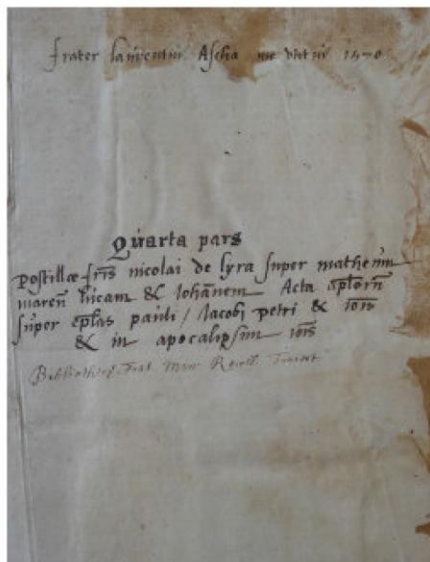 frater laurentiu Ascha me utitur 1570
Quarta pars
Postillæ fr̄is nicolai de lyra super matheum
marcū lucam & Iohānem Acta ap̄lorū
super ep̄las pauli / Iacobi petri & Ioīs
& in apocalipsim Ioīs
Bibliothecæ Frat. Min. Ref.